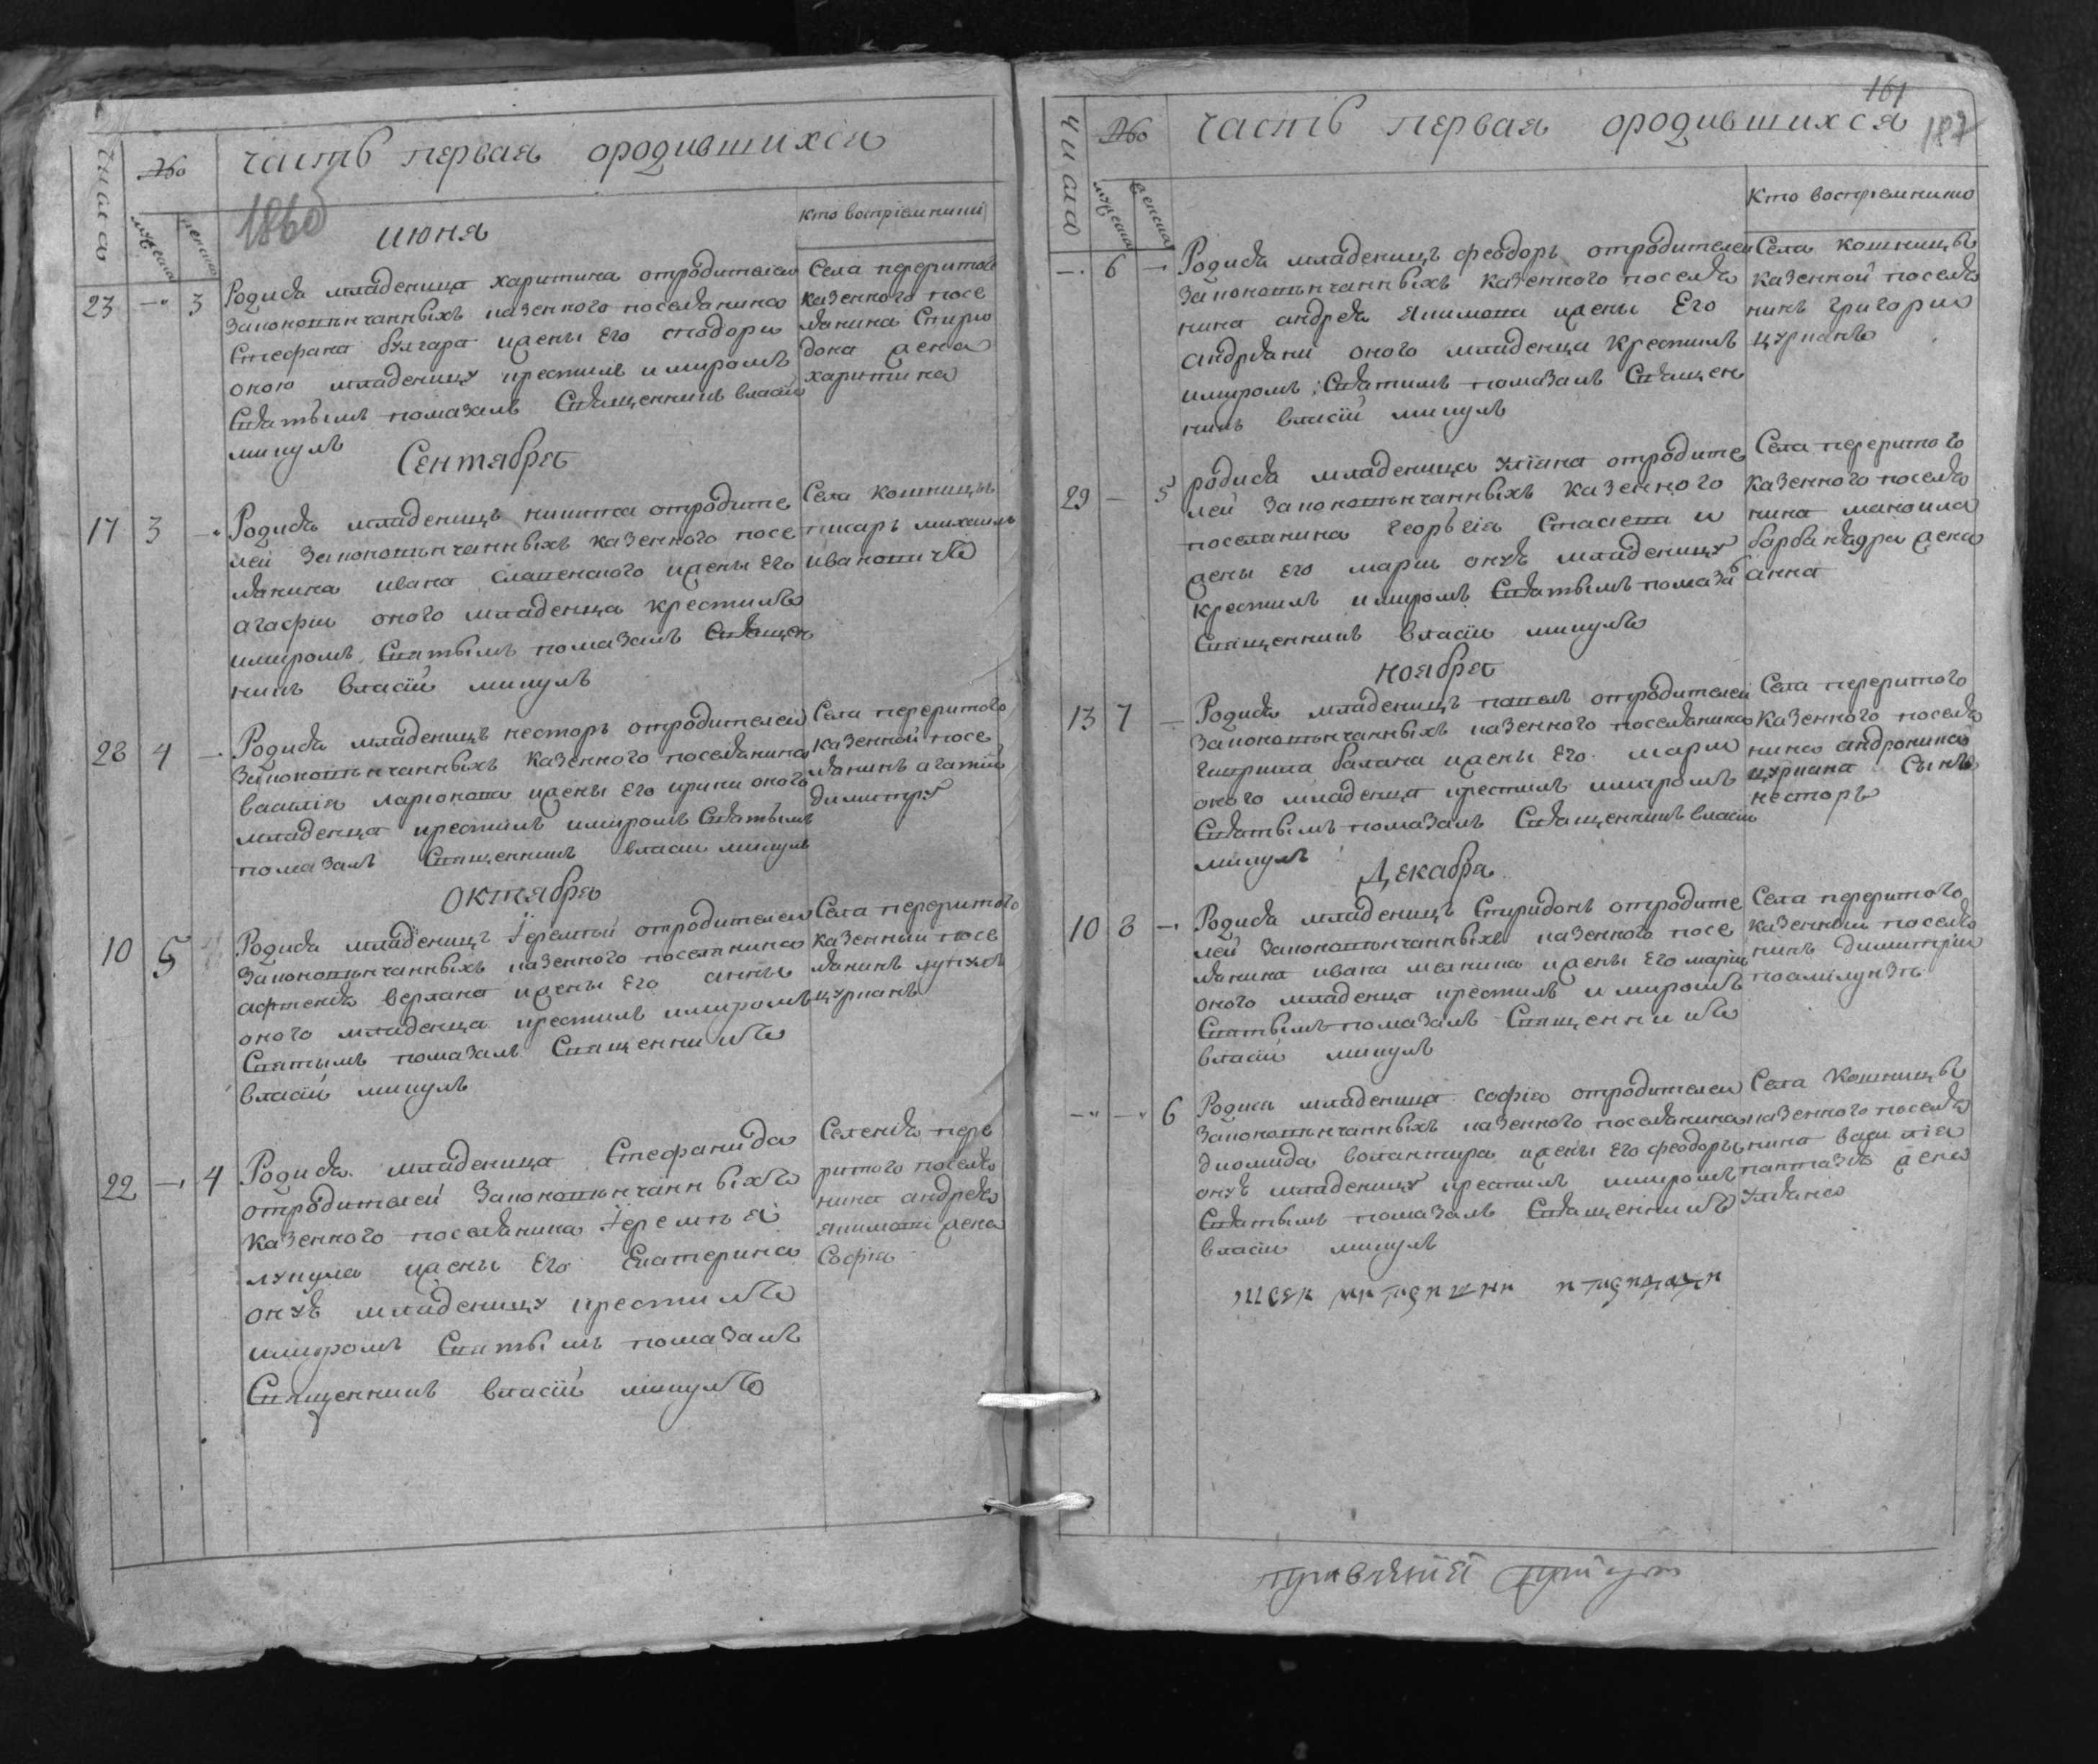 часть первая ородившихся
числа
мужеска
женска
1860
июня
кто восприемники
23 — 3
Родися младеница харитина отродителей
законовѣнчанныхъ казенного поселянина
Стефана булгара ижены Его
оною младеницу крестилъ имиромъ
Святымъ помазалъ Священникъ власій
микулъ
Села переритого
казенного посе
лянина Спири
дона жена
харитина
Сентября
17 3 —
Родися младеницъ никита отродите
лей Законовѣнчанныхъ казенного посе
лянина ивана ижены Его
агафіи оного младенца крестилъ
имиромъ Святымъ помазалъ Священ
никъ власій микулъ
Села кошницы
писарь михаилъ
ивановичъ
28 4 —
Родися младеницъ несторъ отродителей
Законовѣнчанныхъ казенного поселянина
василія ларіонова ижены Его ирини оного
младенца крестилъ имиромъ Святымъ
помазалъ Священникъ власій микулъ
Села переритого
казенной посе
лянинъ агапій
димитру
октября
10 5
Родися младеницъ Іеремій отродителей
Законовѣнчанныхъ казенного поселянина
афтеня верлана ижены Его анны
оного младенца крестилъ имиромъ
Святымъ помазалъ Священникъ
власій микулъ
Села переритого
казенный посе
лянинъ лупулъ
цурканъ
22 — 4
Родися младеница Стефанида
отродителей Законовѣнчанныхъ
казенного поселянина Іеремѣя
лупула ижены Его Екатерина
онуѣ младеницу крестилъ
имиромъ Святымъ помазалъ
Священникъ власій микулъ
Селенѣя пере
ритого поселя
нина андрея
якимова жена
Софія
161
187
часть первая ородившихся
числа
мужеска
женска
Кто восприемники
— 6 —
Родися младеницъ феодоръ отродителей
Законовѣнчанныхъ казенного поселя
нина андрея Якимова ижены Его
андріани оного младенца Крестилъ
имиромъ Святимъ помазалъ Священ
никъ власій микулъ
Села кошницы
казенной поселя
нинъ григорій
цурканъ
29 — 5
родися младеница уліана отродите
лей Законовѣнчанныхъ казенного
поселанина Георьгія Стасева и
жены Его маріи онуѣ младеницу
крестилъ имиромъ Святымъ помаза
Священникъ власій микулъ
Села переритого
казенного поселя
нина маноила
жена
анна
ноября
13 7 —
Родися младеницъ павелъ отродителей
Законовѣнчанныхъ казенного поселянина
балана ижены Его маріи
оного младенца крестилъ имиромъ
Святымъ помазалъ Священникъ власій
микулъ
Села переритого
казенного поселя
нина андроника
цуркана Сынъ
несторъ
Декабря
10 8 —
Родися младеницъ Спиридонъ отродите
лей Законовѣнчанныхъ казенного посе
лянина ивана ижены Его маріи
оного младенца крестилъ и миромъ
Святымъ помазалъ Священникъ
власій микулъ
Села переритого
казенной поселя
нинъ димитрій
— — 6
Родися младеница софія отродителей
Законовѣнчанныхъ казенного поселянина
диомида ижены Его феодоры
онуѣ младеницу крестилъ имиромъ
Святымъ помазалъ Священникъ
власій микулъ
Села Кошницы
казенного поселя
нина василія
жена
уліана